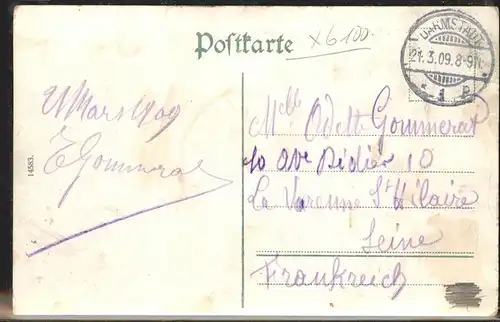 Postkarte
X6100.
DARMSTADT
21.3.09.8-9N.
* 1 P
21 Mars 09
E Gommerat
14583.
Melle Odette Gommerat
10 ave Didier 10
La Varenne St Hilaire
Seine
Frankreich